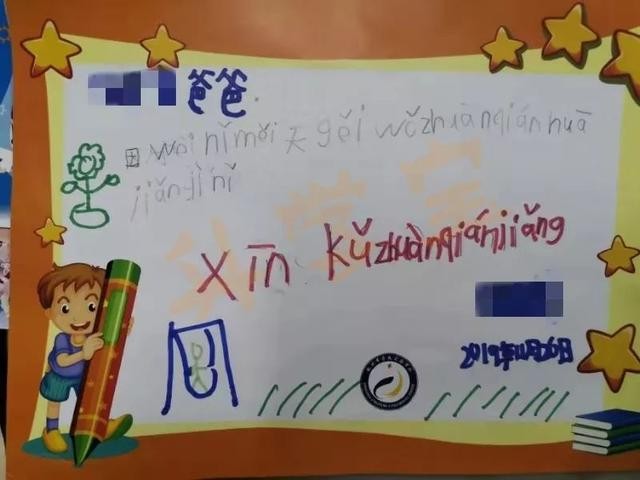 爸爸
因wèi nǐ měi 天 gěi wǒ zhuàn qián huā
jiǎng lì nǐ
xīn kǔ zhuàn qián jiǎng
2019年11月26日